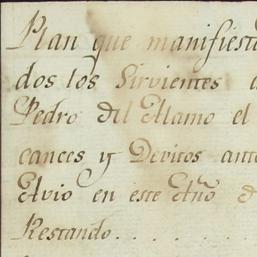 Plan que manifiesta
dos los Sirvientes
Pedro del Alamo el
cances y Devitos ant
Avio en este Año d
Restando . . . . .